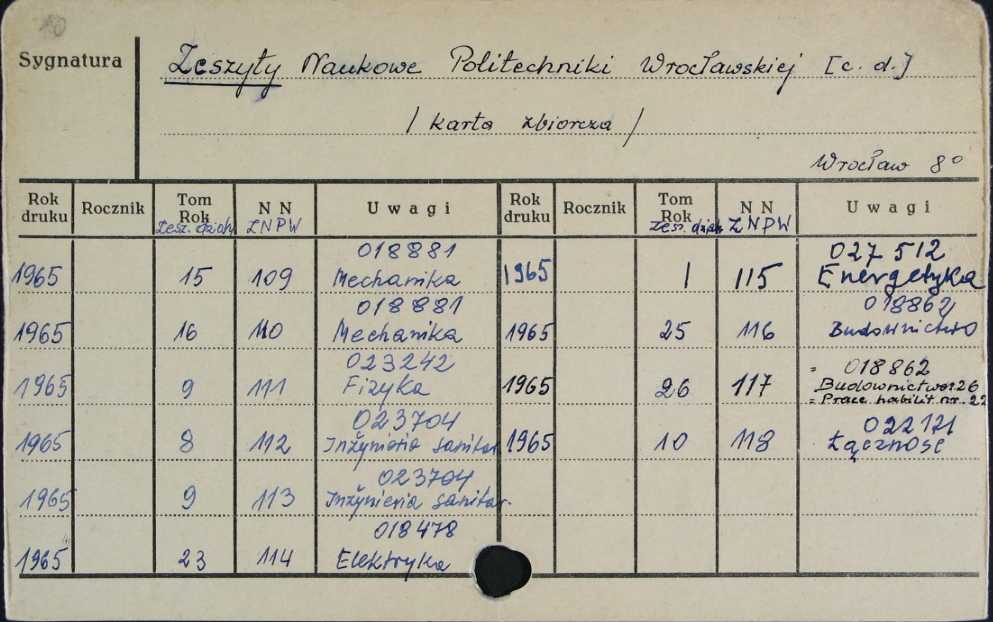 10
Sygnatura
Zeszyty Naukowe Politechniki Wrocławskiej [c. d.]
/ karta zbiorcza /
Wrocław 8°
Rok druku Rocznik Tom Rok Zesz. dział. N N ZNPW Uwagi Rok druku Rocznik Tom Rok Zesz. dział. N N ZNPW Uwagi
018881 027 512
1965 15 109 Mechanika 1965 1 115 Energetyka
018881 018862
1965 16 110 Mechanika 1965 25 116 Budownictwo
023242 = 018862
1965 9 111 Fizyka 1965 26 117 Budownictwo z. 26
= Prace habilit. nr. 22
023704 022121
1965 8 112 Inżynieria sanitar. 1965 10 118 Łączność
023704
1965 9 113 Inżynieria sanitar.
018478
1965 23 114 Elektryka